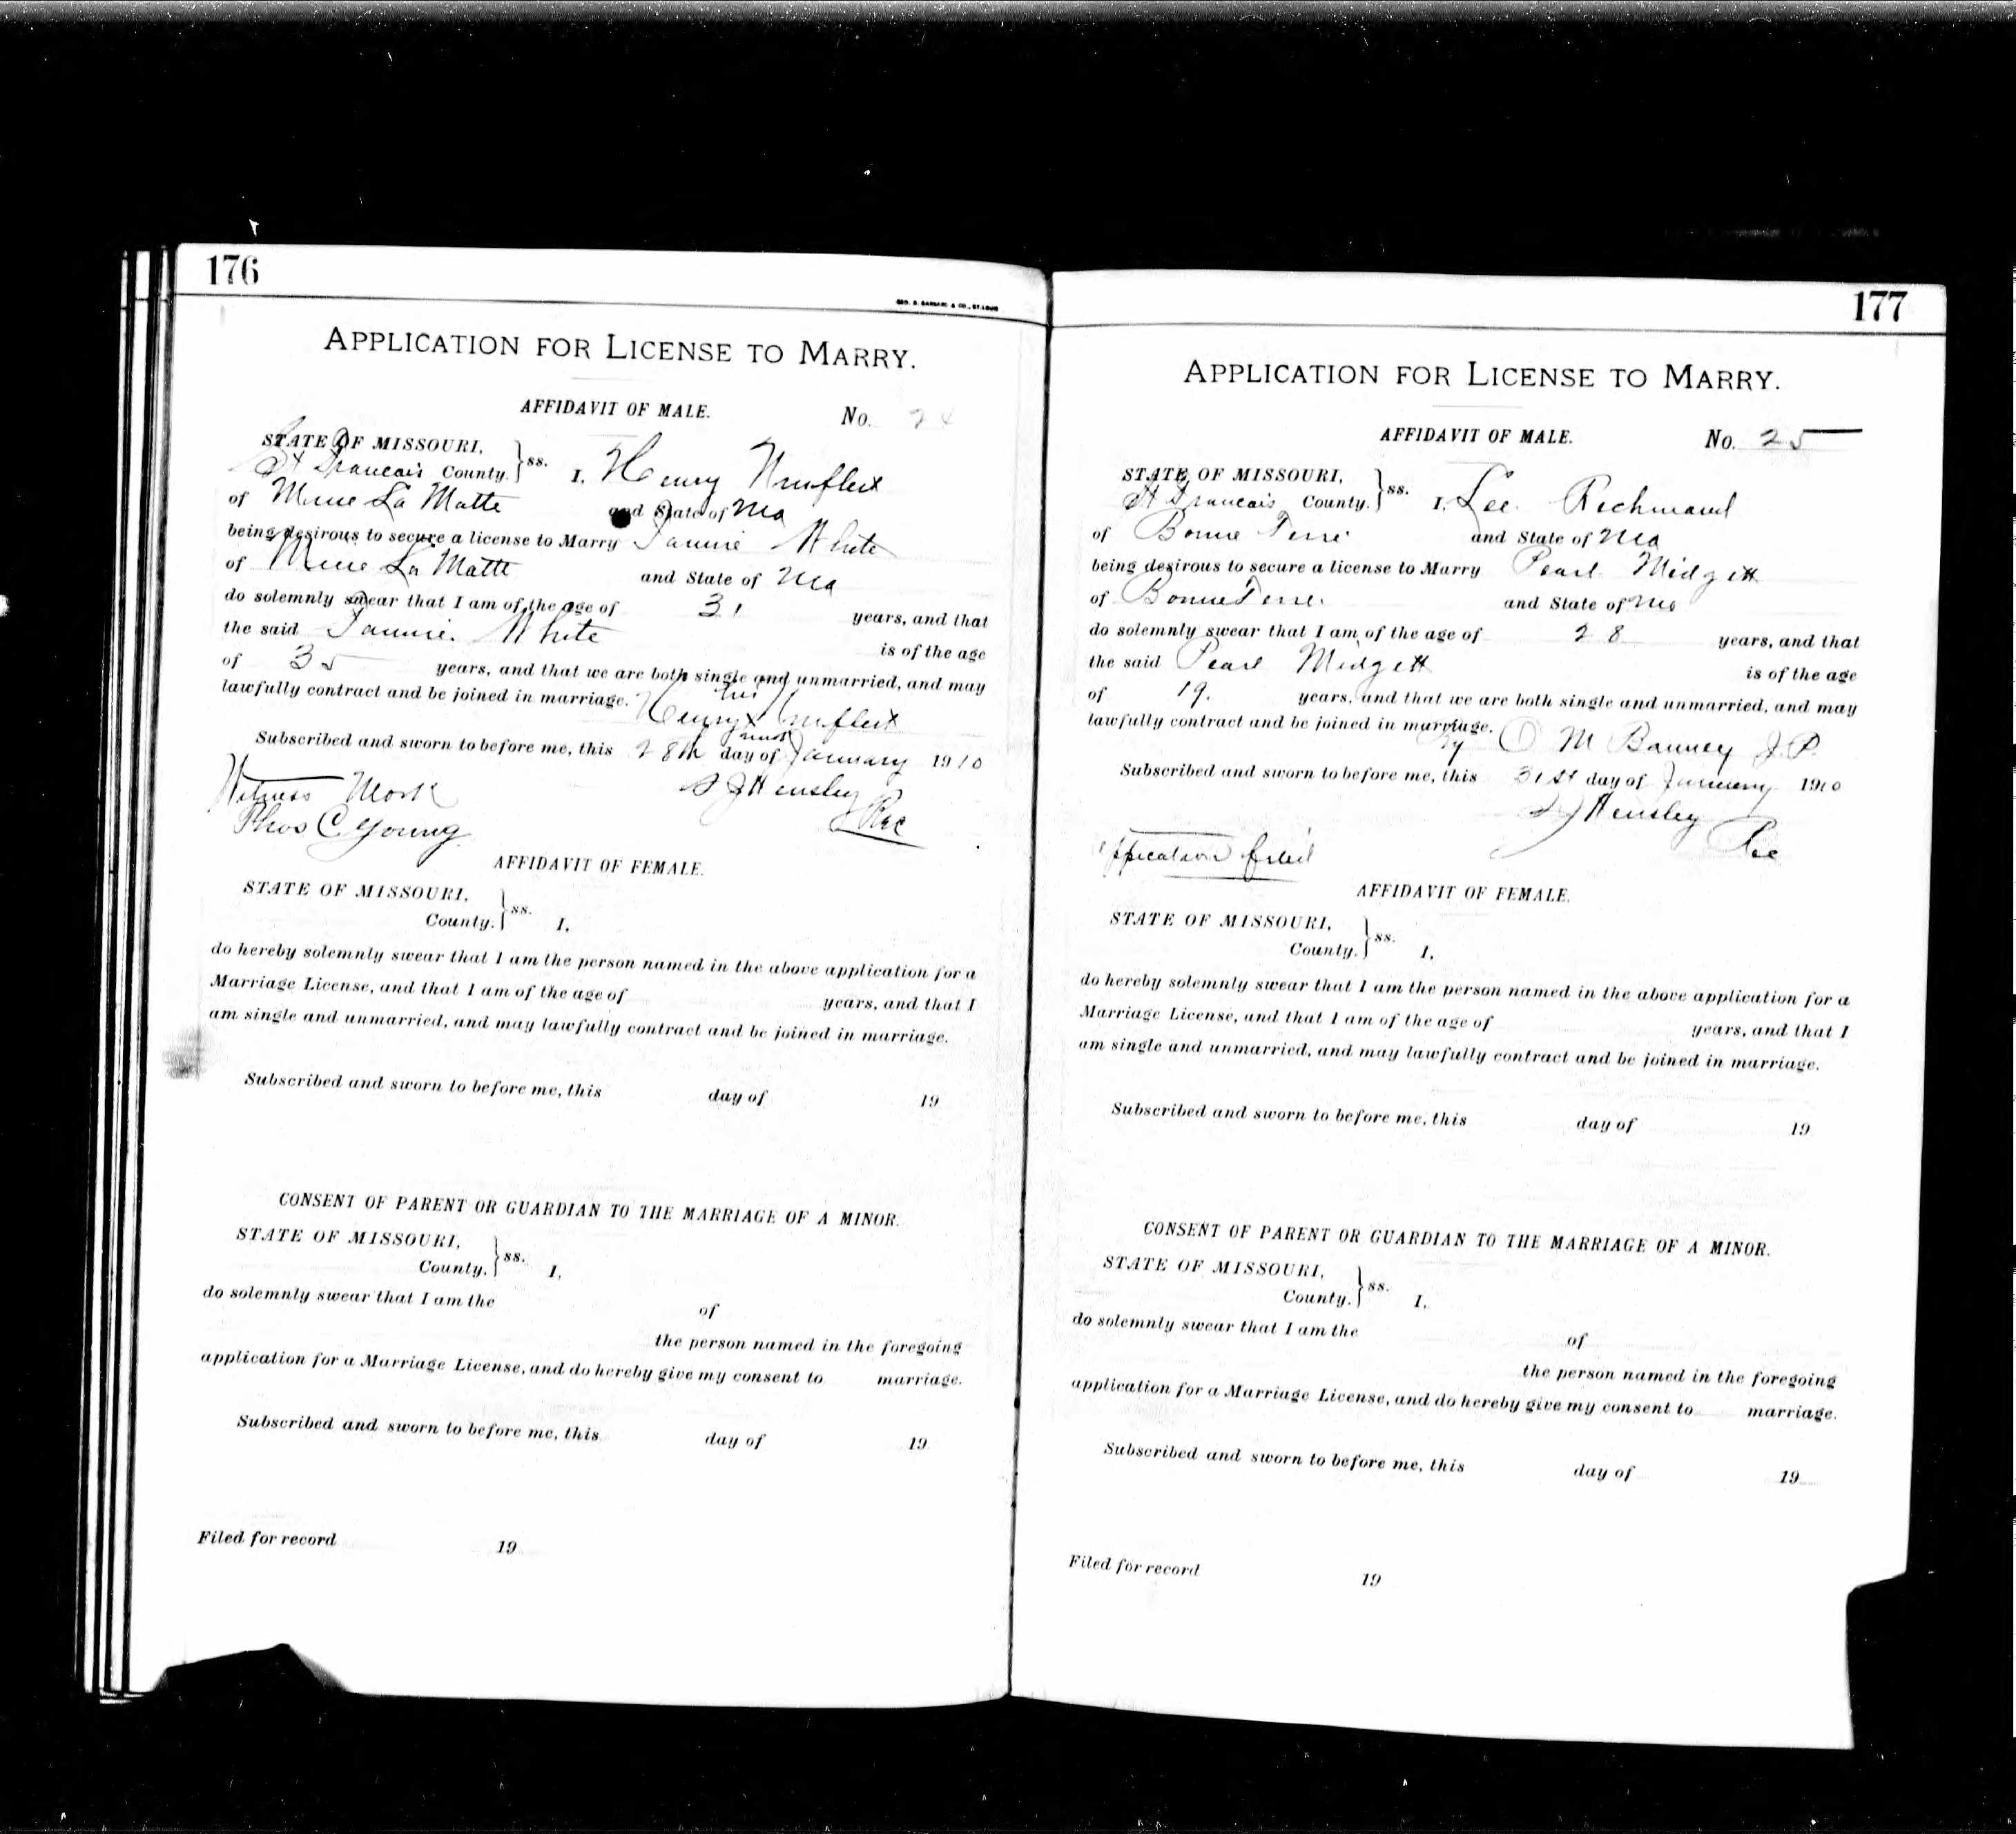 176
GEO. D. BARNARD & CO., ST. LOUIS
APPLICATION FOR LICENSE TO MARRY.
AFFIDAVIT OF MALE. No. 24
STATE OF MISSOURI,
St Francois County. } ss. I, Henry
of Mine La Motte and State of Mo
being desirous to secure a license to Marry White
of Mine La Motte and State of Mo
do solemnly swear that I am of the age of 31 years, and that
the said White is of the age
of 35 years, and that we are both single and unmarried, and may
lawfully contract and be joined in marriage.
his
Henry x
mark
Subscribed and sworn to before me, this 28th day of January 1910
Witness Mark
S J Hensley
Thos C. Young
Rec
AFFIDAVIT OF FEMALE.
STATE OF MISSOURI,
County. } ss. I,
do hereby solemnly swear that I am the person named in the above application for a
Marriage License, and that I am of the age of years, and that I
am single and unmarried, and may lawfully contract and be joined in marriage.
Subscribed and sworn to before me, this day of 19
CONSENT OF PARENT OR GUARDIAN TO THE MARRIAGE OF A MINOR.
STATE OF MISSOURI,
County. } ss. I,
do solemnly swear that I am the of
the person named in the foregoing
application for a Marriage License, and do hereby give my consent to marriage.
Subscribed and sworn to before me, this day of 19
Filed for record 19
177
APPLICATION FOR LICENSE TO MARRY.
AFFIDAVIT OF MALE. No. 25
STATE OF MISSOURI,
St Francois County. } ss. I, Lee Richmand
of Bonne Terre and State of Mo
being desirous to secure a license to Marry Pearl Midgett
of Bonne Terre. and State of Mo
do solemnly swear that I am of the age of 28 years, and that
the said Pearl Midgett is of the age
of 19. years, and that we are both single and unmarried, and may
lawfully contract and be joined in marriage.
By O M J. P.
Subscribed and sworn to before me, this 31st day of January 1910
S J Hensley
Application filed
Rec
AFFIDAVIT OF FEMALE.
STATE OF MISSOURI,
County. } ss. I,
do hereby solemnly swear that I am the person named in the above application for a
Marriage License, and that I am of the age of years, and that I
am single and unmarried, and may lawfully contract and be joined in marriage.
Subscribed and sworn to before me, this day of 19
CONSENT OF PARENT OR GUARDIAN TO THE MARRIAGE OF A MINOR.
STATE OF MISSOURI,
County. } ss. I,
do solemnly swear that I am the of
the person named in the foregoing
application for a Marriage License, and do hereby give my consent to marriage.
Subscribed and sworn to before me, this day of 19
Filed for record 19